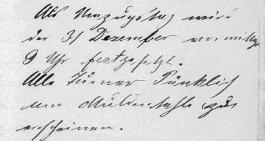 Als Umzugstag wird
der 31 Dezember vormittag
9 Uhr festgesetzt.
Alle Turner Pünktlich
am
erscheinen.